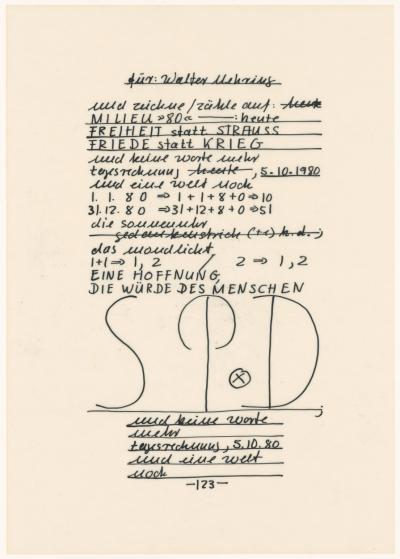 für: Walter Mehring
und zeichne/zähle auf: heute
MILIEU »80« ——: heute
FREIHEIT statt STRAUSS
FRIEDE statt KRIEG
und keine worte mehr
tagesrechnung heute, 5.10.1980
und eine welt noch
1. 1. 8 0 ⇒ 1+1+8+0⇒10
31.12. 8 0 ⇒31+12+8+0⇒51
die sonnenuhr
gedankenstrich (+s) h.d.;
das mondlicht
1+1⇒ 1, 2 / 2 ⇒ 1, 2
EINE HOFFNUNG
DIE WÜRDE DES MENSCHEN
SPD
;
und keine worte
mehr
tagesrechnung, 5.10.80
und eine welt
noch
—123—